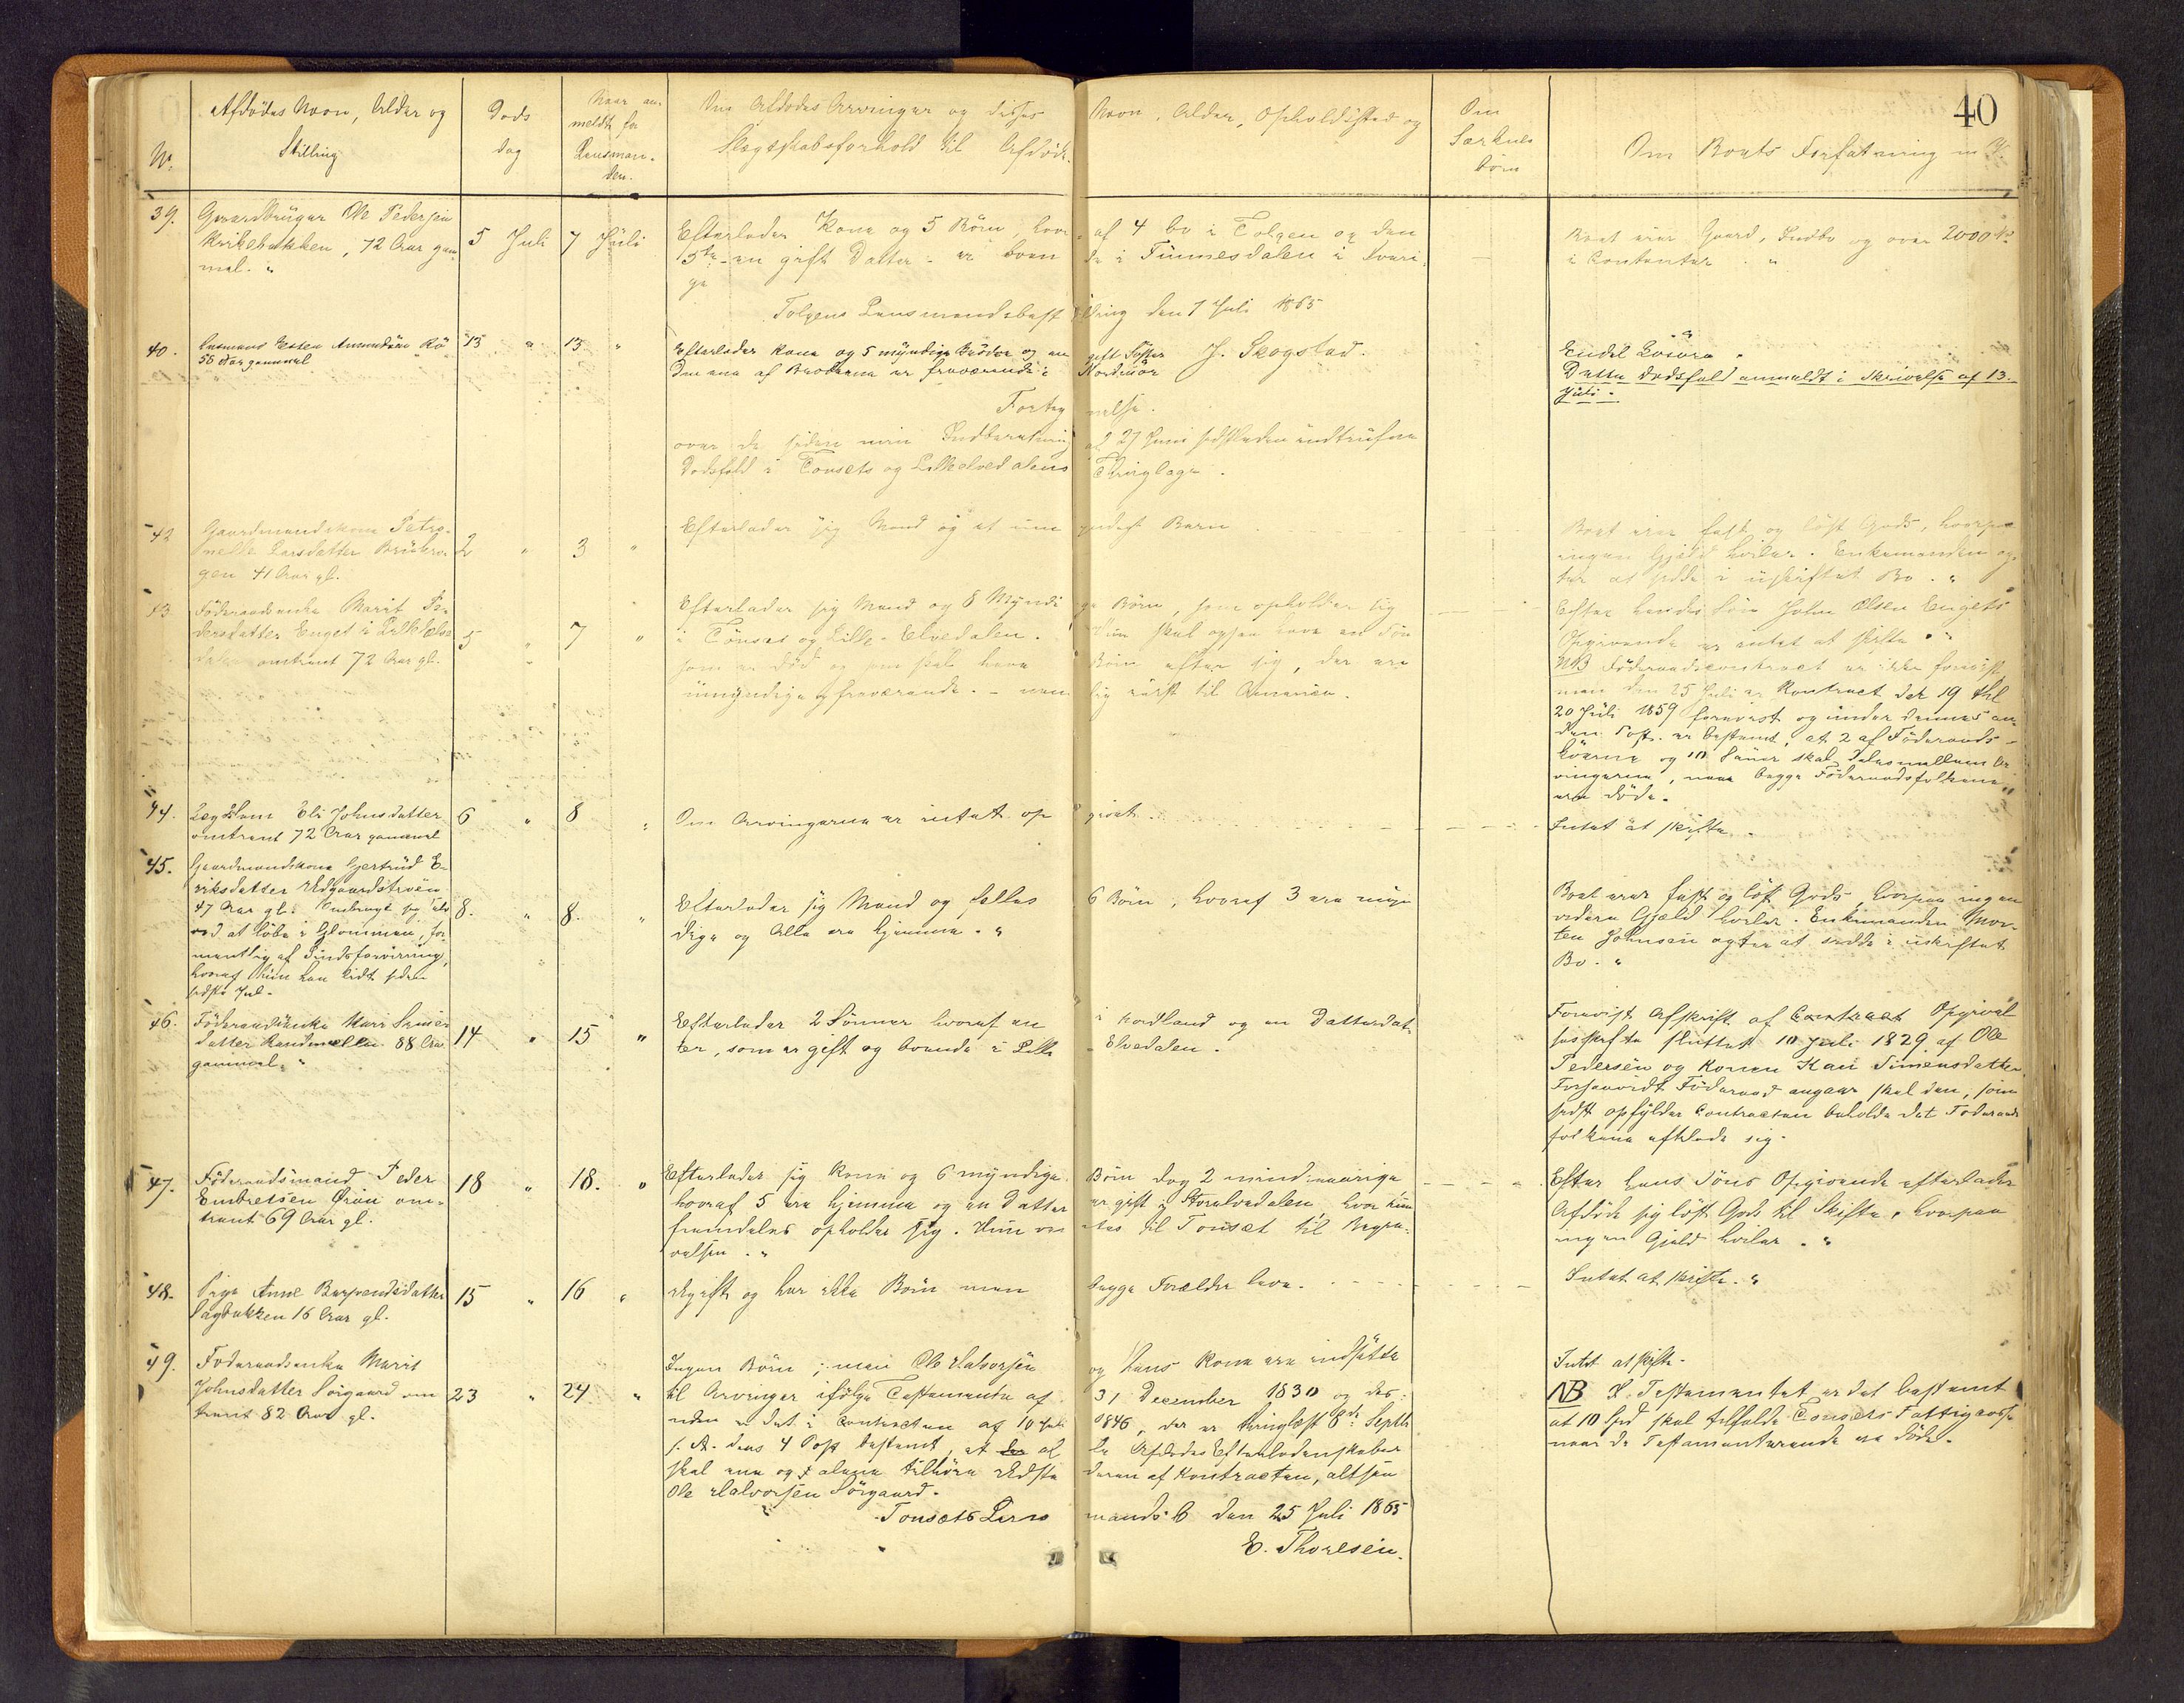 40
No.
Afdödes Navn, Alder og
Stilling
Döds
dag
Naar an-
meldt for
Lensman-
den.
Om Afdödes Arvinger og disses Navn, Alder, Opholdssted og
Slægtskabsforhold til Afdöde.
Om
Særkuls
börn
Om Boets Forfatning m.V.
39. Gaardbruger Ole Pedersen
Kirkebakken, 72 Aar gam
mel. "
5 Juli 7 Juli
Efterlader Kone og 5 Börn, hvor- af 4 bo i Tolgen og den
5te - en gift Datter - er boen de i Finnesdalen i Sveri-
ge
Boet eier Gaard, Indbo og over 2000
i Contanter. "
Tolgens Lensmandsbest illing den 7 Juli 1865
J. Skogstad.
40. Husmand Esten Amundsen
58 Aar gammel
13 " 13 "
Efterlader Kone og 5 myndige Brödre og en gift Söster
Den ene af Brödrene er fraværende i Nordmör
Endel Lösöre.
Dette Dödsfald anmeldt i Skrivelse af 13.
Juli.
Forteg nelse.
over de siden min Indberetning af 27 Juni sidstleden indtrufne
Dödsfald i Tönsets og Lilleelvedalens Thinglage.
42 Gaardmandskone Petro-
nelle Larsdatter
gen 41 Aar gl.
2 " 3 "
Efterlader sig Mand og et um yndigt Barn
Boet eier fast og löst Gods, hvorpaa
ingen Gjæld hviler. Enkemanden ag-
ter at sidde i uskiftet Bo. "
43 Föderaadsenke Marit Pe-
dersdatter Enget i Lilleelve
dalen omtrent 72 Aar gl.
5 " 7 "
Efterlader sig Mand og 8 Myndi ge Börn, som opholder sig
i Tönset og Lille-Elvedalen. Hun skal ogsaa have en Sön
som er död og som skal have Börn efter sig, der ere
umyndige og fraværende. - nem lig reist til America.
Efter hendes Sön John Olsen Engets
Opgivende er intet at skifte. "
NB Föderaadscontract er ikke forevist,
men den 25 Juli er Kontract dat 19 thl
20 Juli 1859 forevist og under dennes an
den Post. er bestemt, at 2 af Föderaads-
köerne og 10 Sauer skal deles mellem Ar
vingerne, naar begge Föderaadsfolkene
ere döde.
44. Lægdslem Eli Johnsdatter
omtrent 72 Aar gammel
6 " 8 "
Om Arvingerne er intet op givet.
Intet at skifte.
45. Gaardmandskone Gjertrud E-
riksdatter Udgaardstrøen
47 Aar gl. Ombragt sig selv
ved at löbe i Glommen, for
mentlig af Sindsforvirring,
hvoraf hun har lidt siden
sidste Jul.
8. " 8. "
Efterlader sig Mand og fælles 6 Börn, hvoraf 3 ere myn
dige og Alle ere hjemme. "
Boet eier fast og löst Gods, hvorpaa ingen
videre Gjæld hviler. Enkemanden Mor-
ten Johnsen agter at sidde i uskiftet
Bo. "
46. Föderaadsenke Kari Simens
datter 88 Aar
gammel. "
14 " 15 "
Efterlader 2 Sönner hvoraf en i Nordland og en Datterdat-
ter, som er gift og boende i Lille -Elvedalen.
Forevist Afskrift af Contract Opgivel
sesskifte sluttet 10 Juli 1829 af Ole
Pedersen og Konen Kari Simensdatter.
Forsaavidt Föderaad angaar skal den, som
sidst opfylder Contracten beholde det Föderaads
folkene efterlade sig.
47. Föderaadsmand Peder
Embretsen Öien om-
trent 69 Aar gl.
18 " 18. "
Efterlader sig Kone og 6 myndige Börn dog 2 mindreaarige
hvoraf 5 ere hjemme og en Datter er gift i Storelvedalen, hvor hun
fremdeles opholder sig. Hun ven tes til Tönset til Begra-
velsen. "
Efter hans Söns Opgivende efterlader
Afdöde sig löst Gods til Skifte, hvorpaa
ingen Gjæld hviler. "
48. Pige Anne Berpendsdatter
Bakken 16 Aar gl.
15 " 16 "
Ugift og har ikke Börn men begge Forældre leve.
Intet at skifte. "
49. Föderaadsenke Marit
Johnsdatter Sörgaard om
trent 82 Aar gl.
23 " 24 "
Ingen Börn; men Ole Halvorsen og hans Kone ere indsatte
til Arvinger ifölge Testamente af 31 December 1830 og des-
uden er det i Contracten af 10 Juli 1846, der er thinglæst 8de Septb
s. A. dens 4 Post bestemt, at der al De Afdödes Efterladenskaber
skal ene og alene tilhöre Udste deren af Kontracten, altsaa
Ole Halvorsen Sörgaard.
Intet at skifte.
NB I Testamentet er det bestemt
at 10 Spd skal tilfalde Tönsets Fattigcasse
naar de Testamenterende ere döde.
Tönsets Lens mands B den 25 Juli 1865
E. Thoresen.